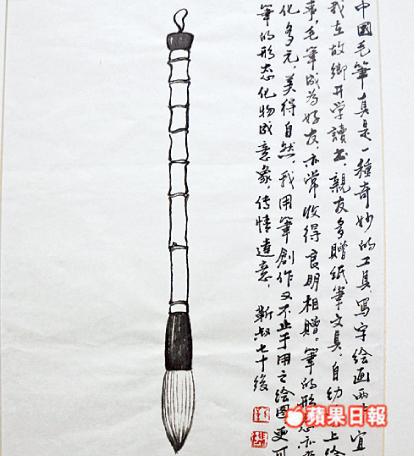 中國毛筆真是一種奇妙的工具,寫字绘画两宜
我在故鄉开学讀书,親友多贈纸筆文具,自幼上
事,毛筆成為好友,亦常收得良朋相贈。筆的形态亦
化多元,美得自然,我用筆創作又不止于用之绘图更可
筆的形态化物成意象,传情達意。靳叔七十後
蘋果日報